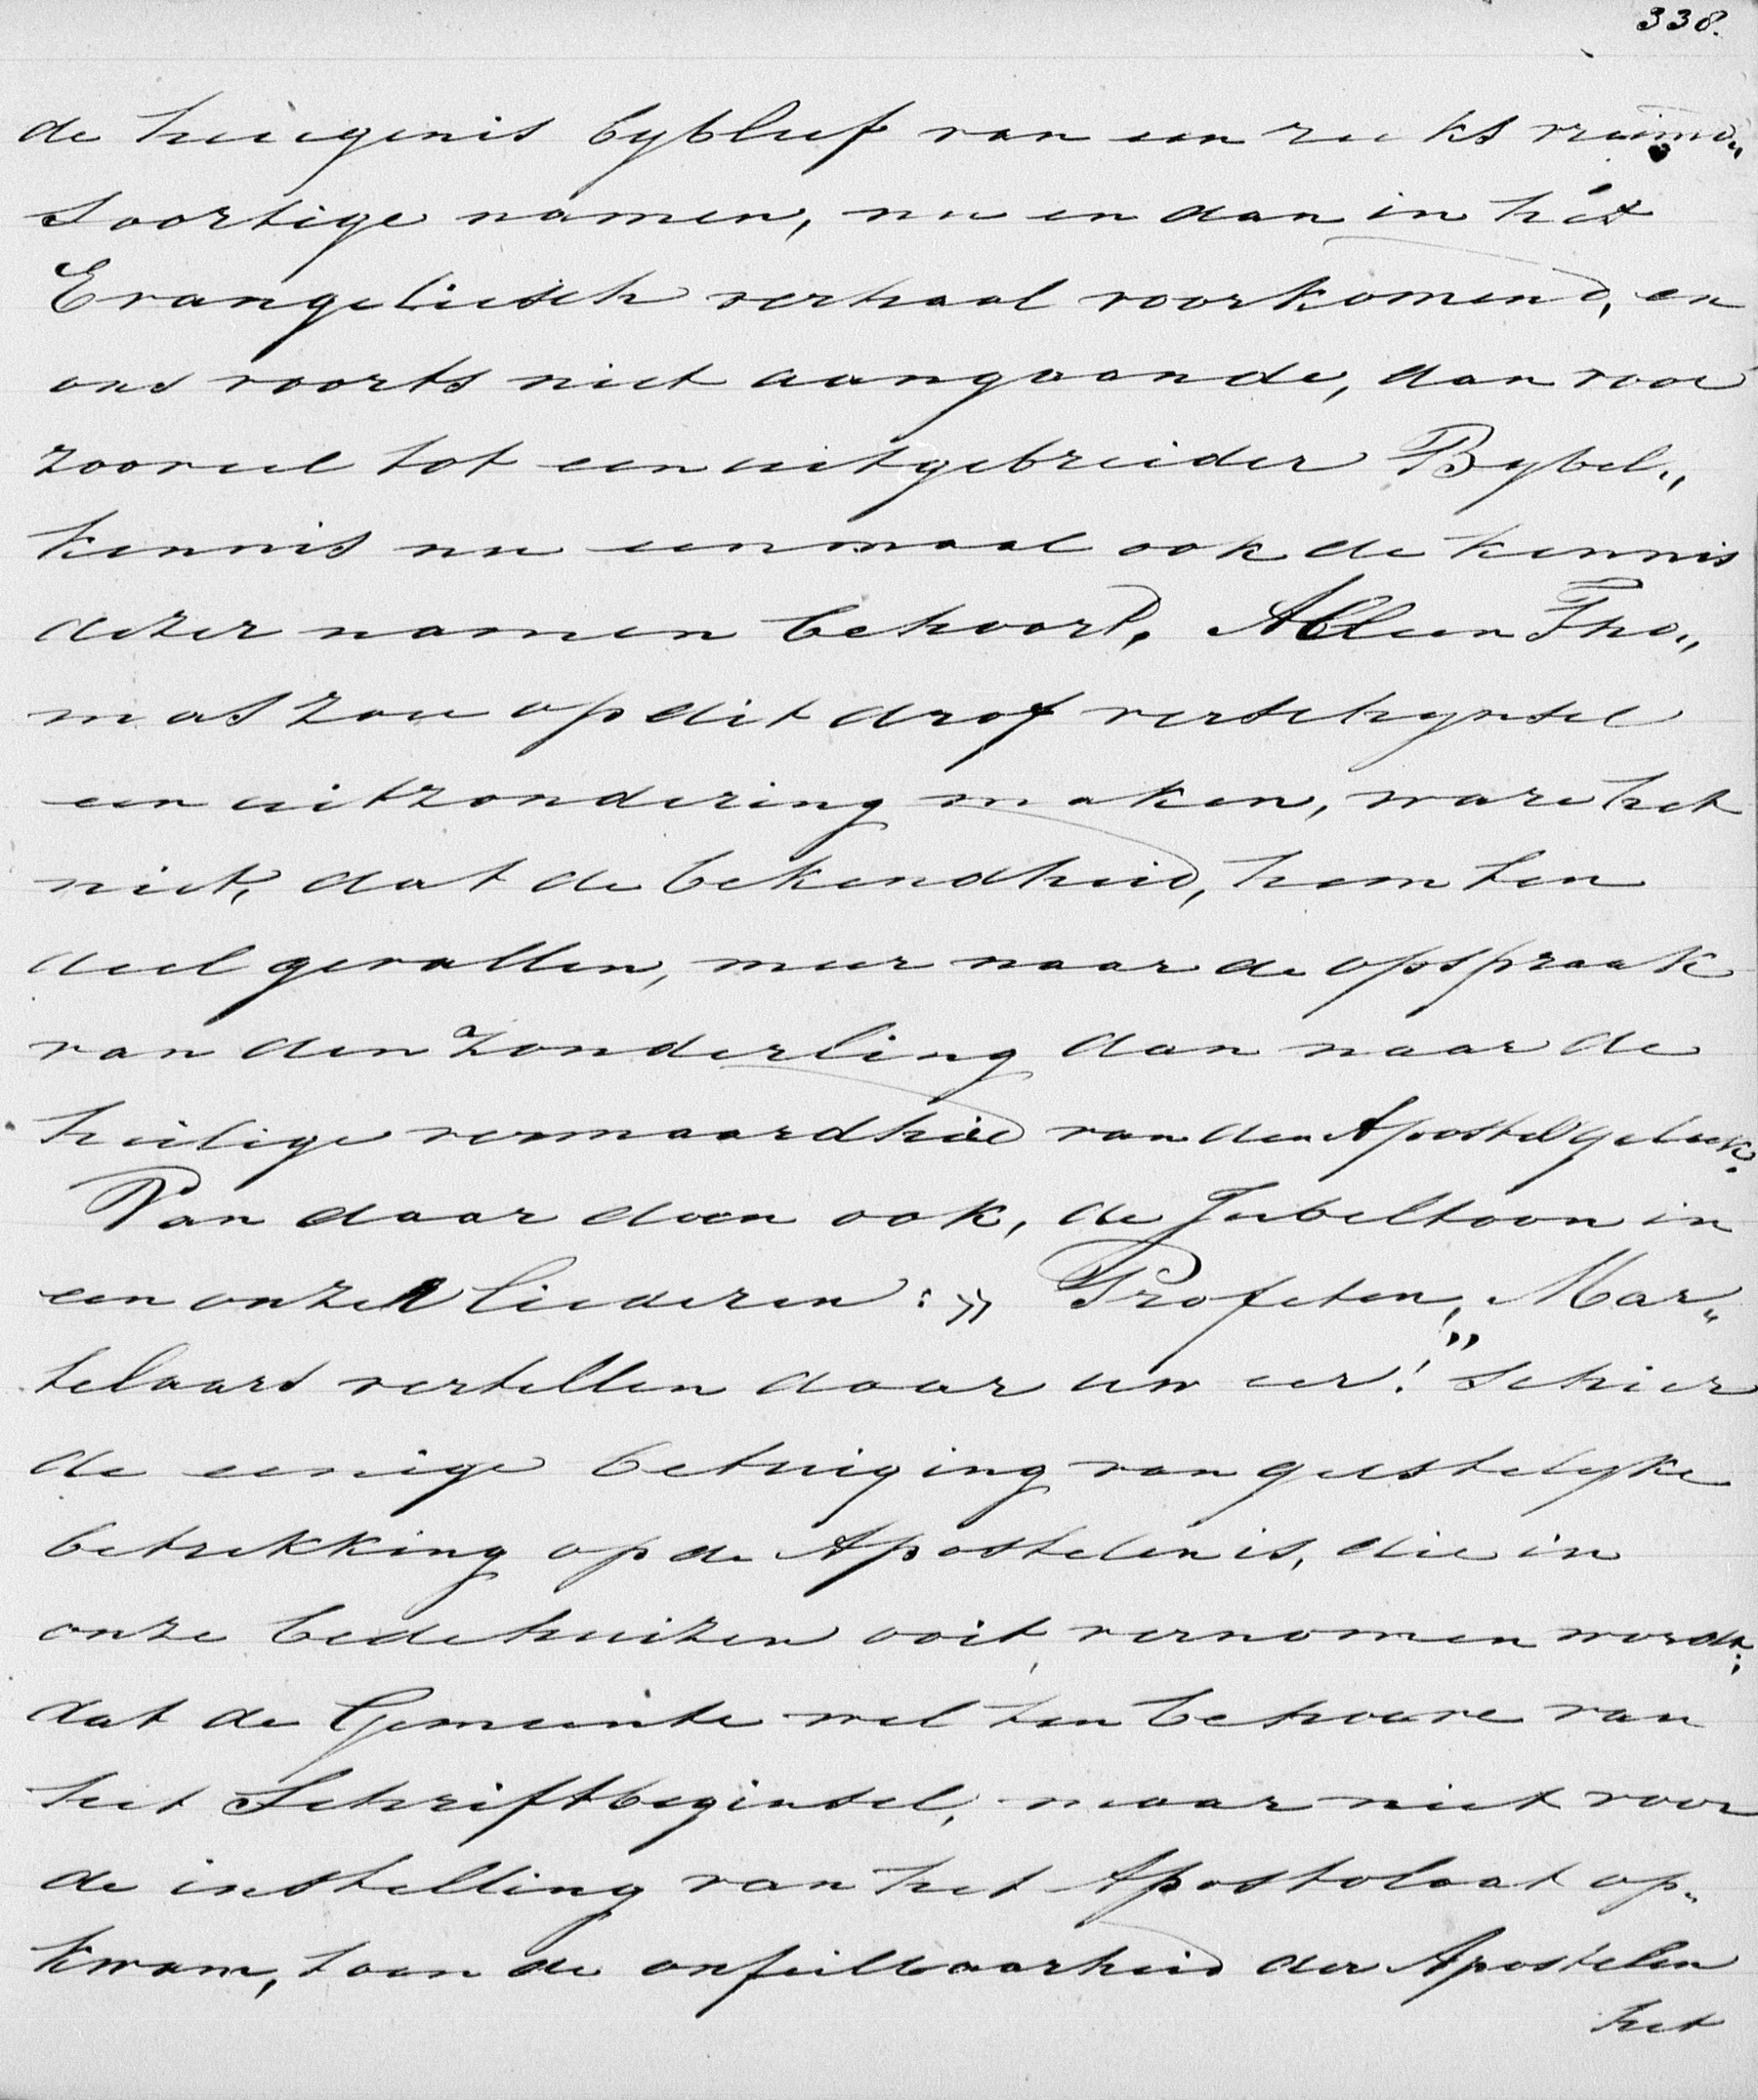 338.
de heugenis bybleef van een reeks vreemd„
soortige namen, nu en dan in het
Evangeliesch verhaal voorkomend, en
ons voorts niet aangaande, dan voor
zooveel tot een uitgebreider Bybel„
kennis nu eenmaal ook de kennis
dezer namen behoort. Alleen Tho„
mas zou op dit droef verschynsel
een uitzondering maken, ware het
niet, dat de bekendheid, hem ten
deel gevallen, meer naar de opspraak
van den zonderling dan naar de
heilige vermaardheid van den Apostel geleek.
Van daar dan ook, de Jubeltoon in
een onzer liederen: „ Profeten, Mar„
telaars vertellen daar uw eer!” schier
de eenige betuiging van geestelyke
betrekking op de Apostelen is, die in
onze bedehuizen ooit vernomen wordt;
dat de Gemeente wel ten behoeve van
het Schriftbeginsel, maar niet voor
de instelling van het Apostolaat op„
kwam, toen de onfeilbaarheid der Apostelen
het